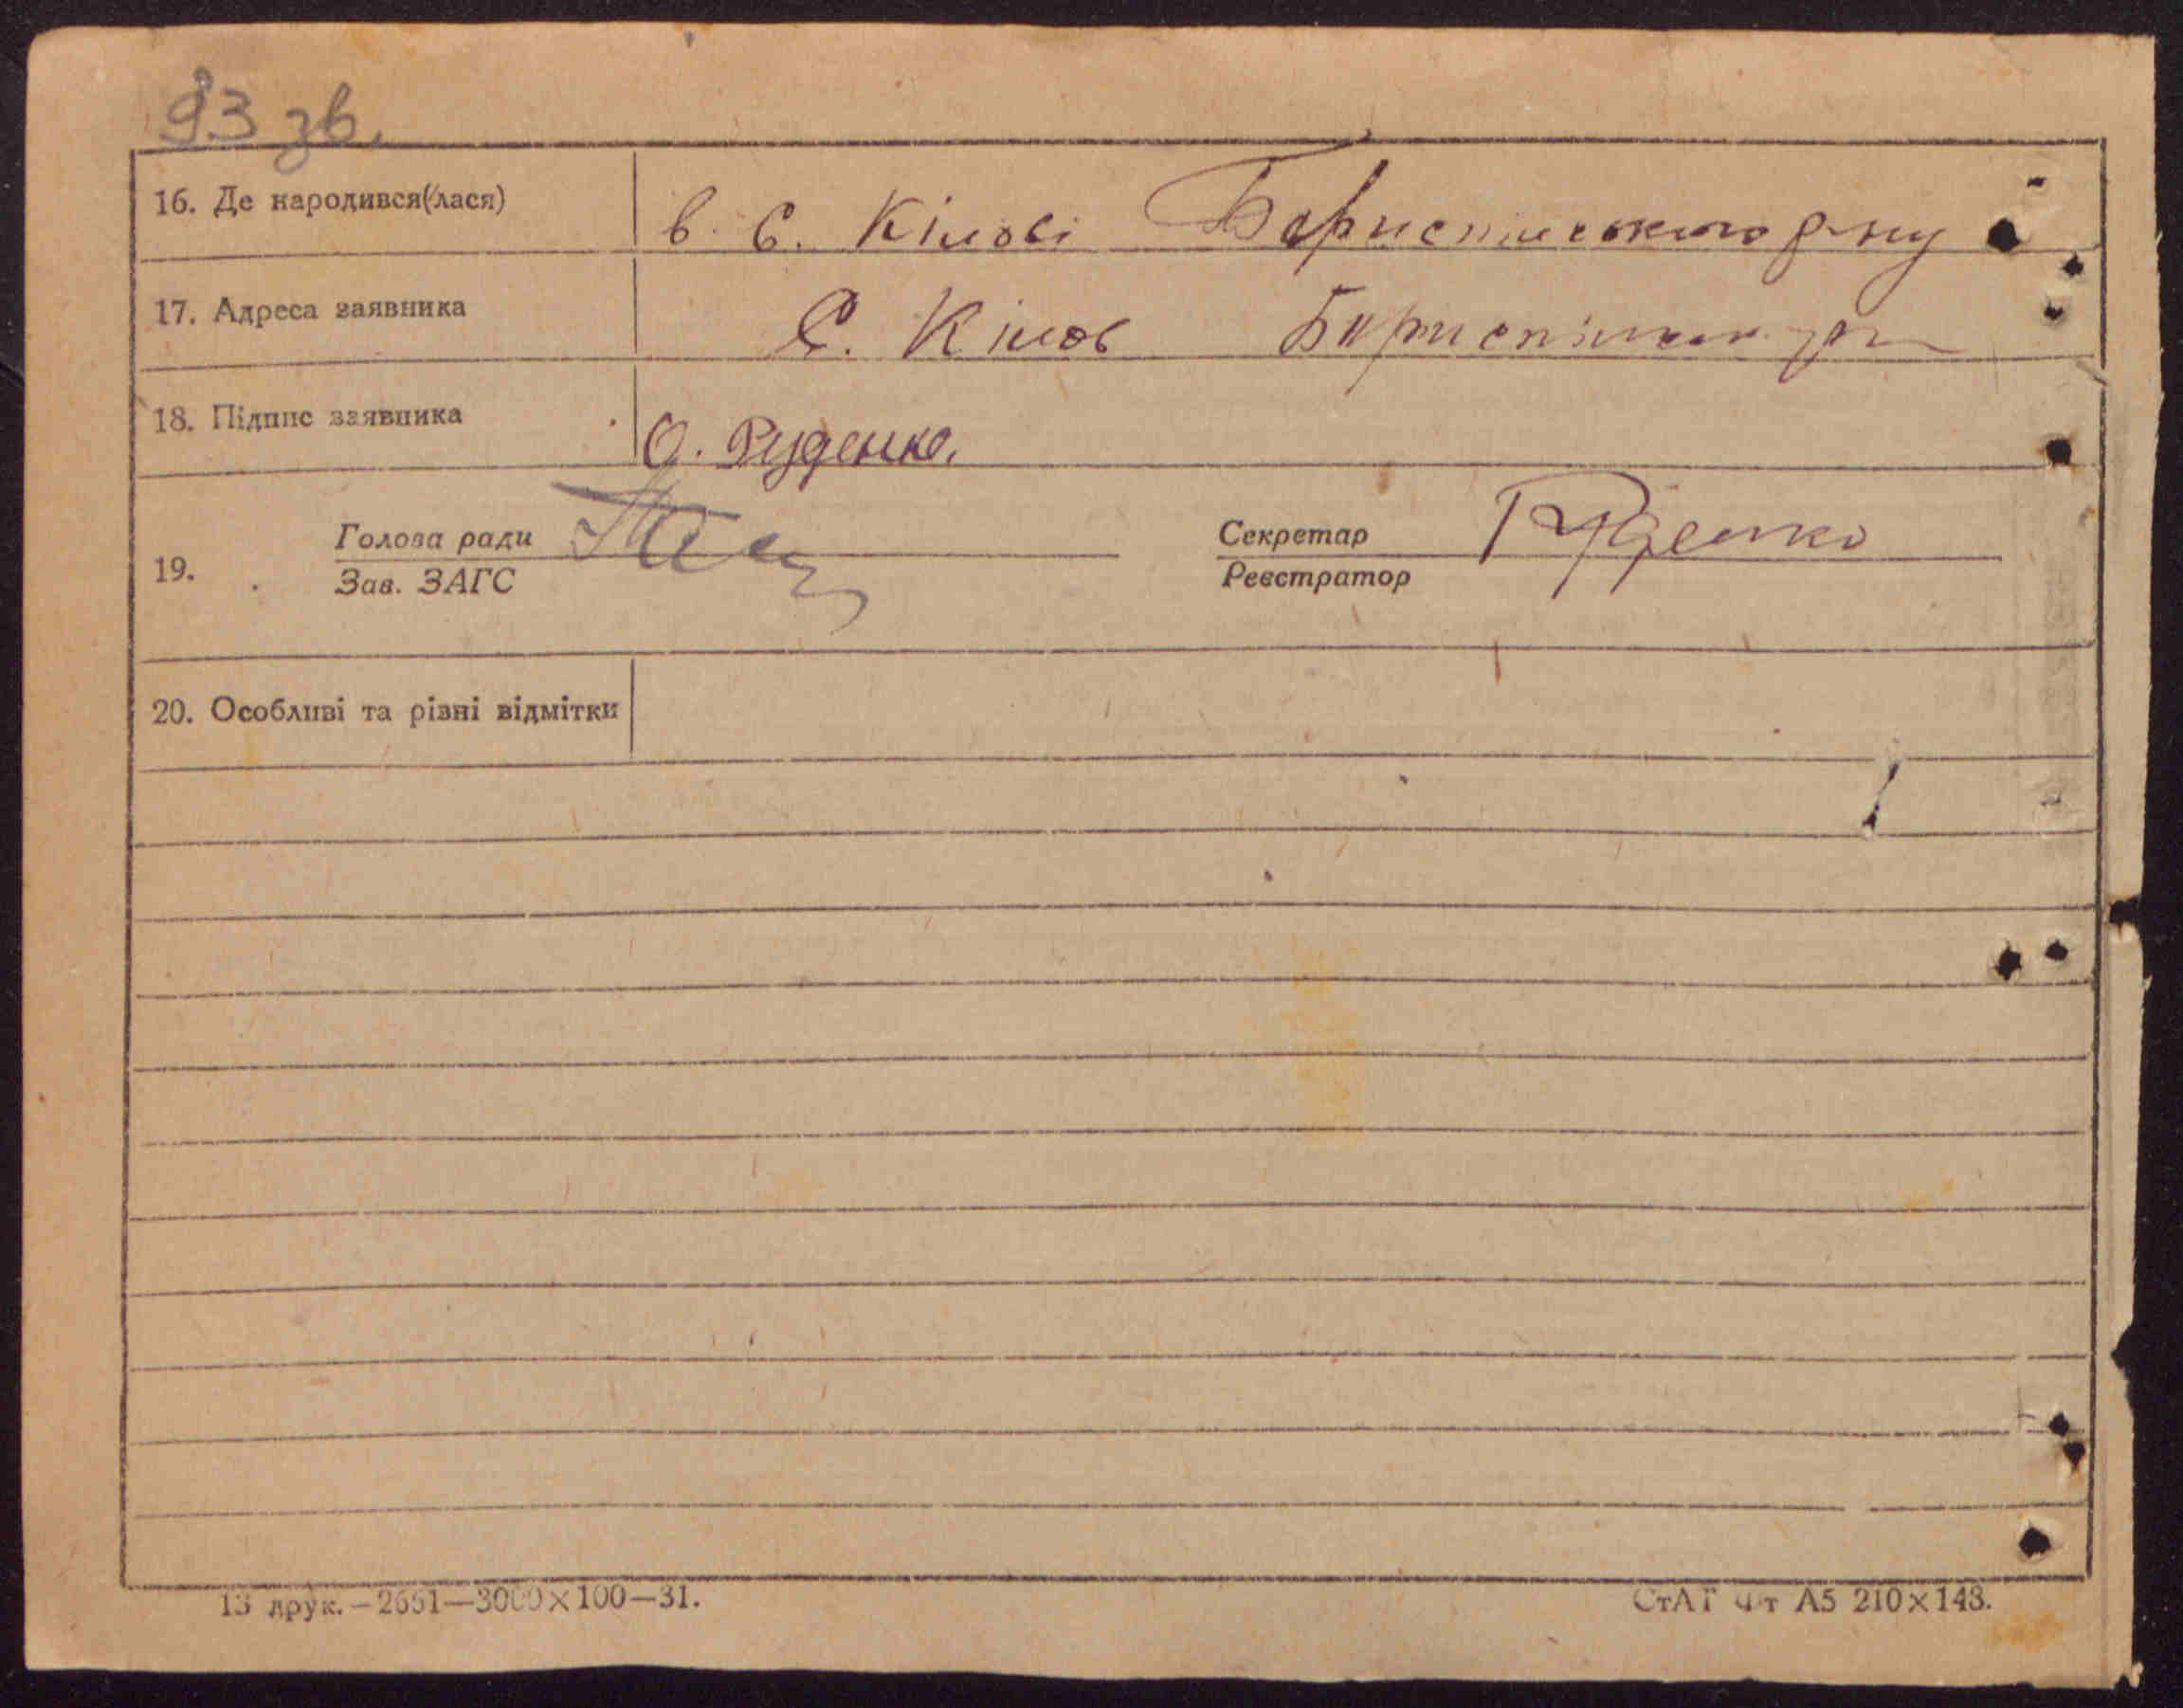 93 зв.
16. Де народився(лася) в с. Кілові Бориспільського р-ну
17. Адреса заявника С. Кілов Бориспільськ.
18. Підпис заявника О. Руденко.
19. Голова ради Секретар Руденко
Зав. ЗАГС Реєстратор
20. Особливі та різні відмітки
13 друк. — 2651—3000×100—31. СтАТ А5 210×143.